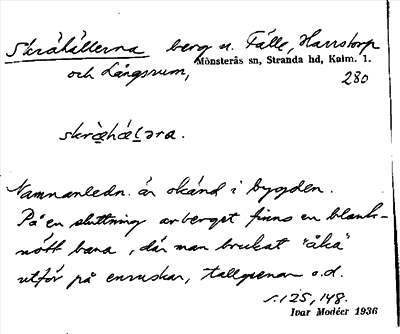 Skråhällorna berg n. Fålle, Harrstorp
och Långsrum, Mönsterås sn, Stranda hd, Kalm. l.
280
skræ̀hǽlǝra.
Namnanledn. är okänd i bygden.
På en sluttning av berget finns en blank-
nött bana, där man brukat "åka"
utför på enruskor, tallgrenar o.d.
s. 125, 148.
Ivar Modéer 1936